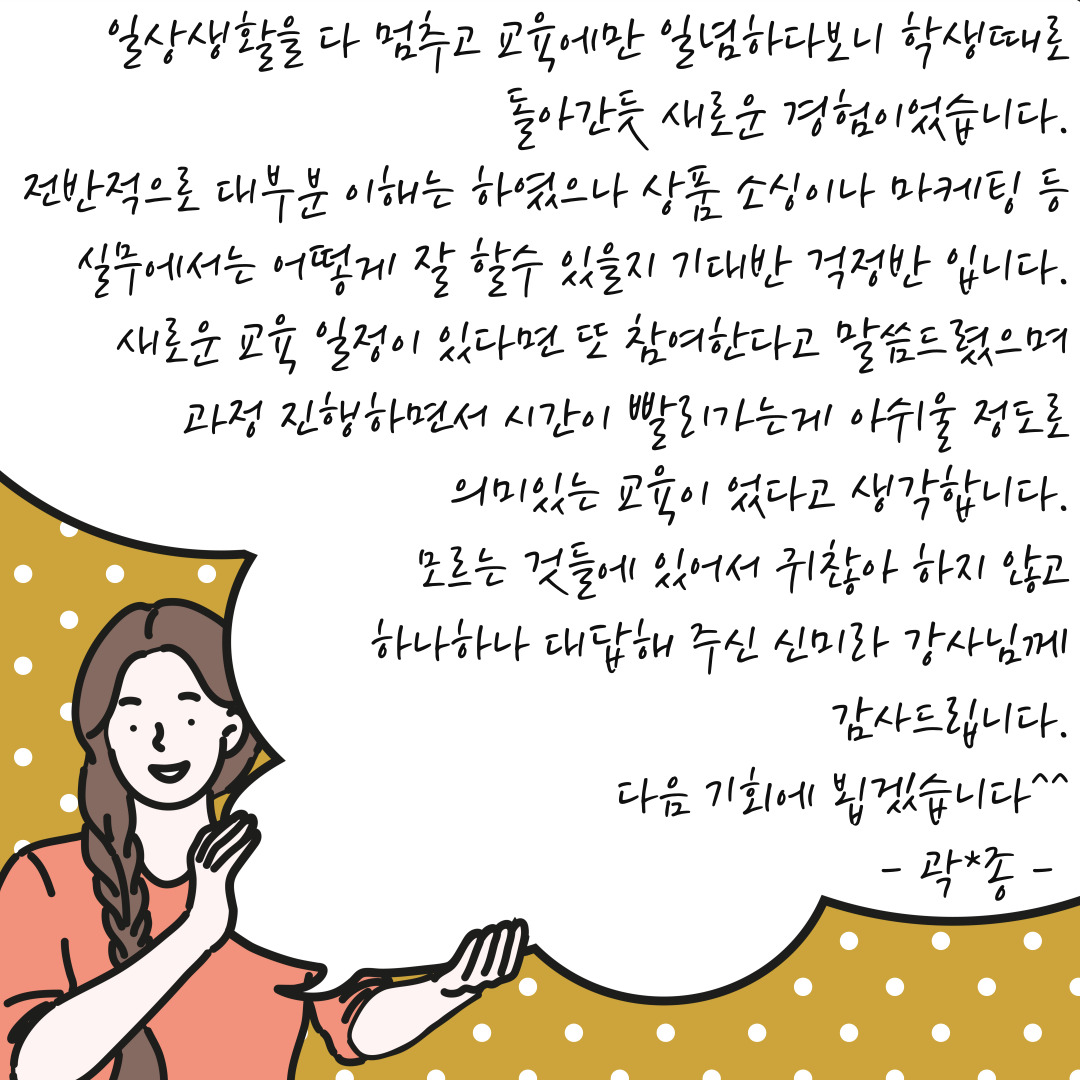 일상생활을 다 멈추고 교육에만 일념하다보니 학생때로
돌아간듯 새로운 경험이었습니다.
전반적으로 대부분 이해는 하였으나 상품 소싱이나 마케팅 등
실무에서는 어떻게 잘 할수 있을지 기대반 걱정반 입니다.
새로운 교육 일정이 있다면 또 참여한다고 말씀드렸으며
과정 진행하면서 시간이 빨리가는게 아쉬울 정도로
의미있는 교육이 었다고 생각합니다.
모르는 것들에 있어서 귀찮아 하지 않고
하나하나 대답해 주신 신미라 강사님께
감사드립니다.
다음 기회에 뵙겠습니다^^
- 곽*종 -